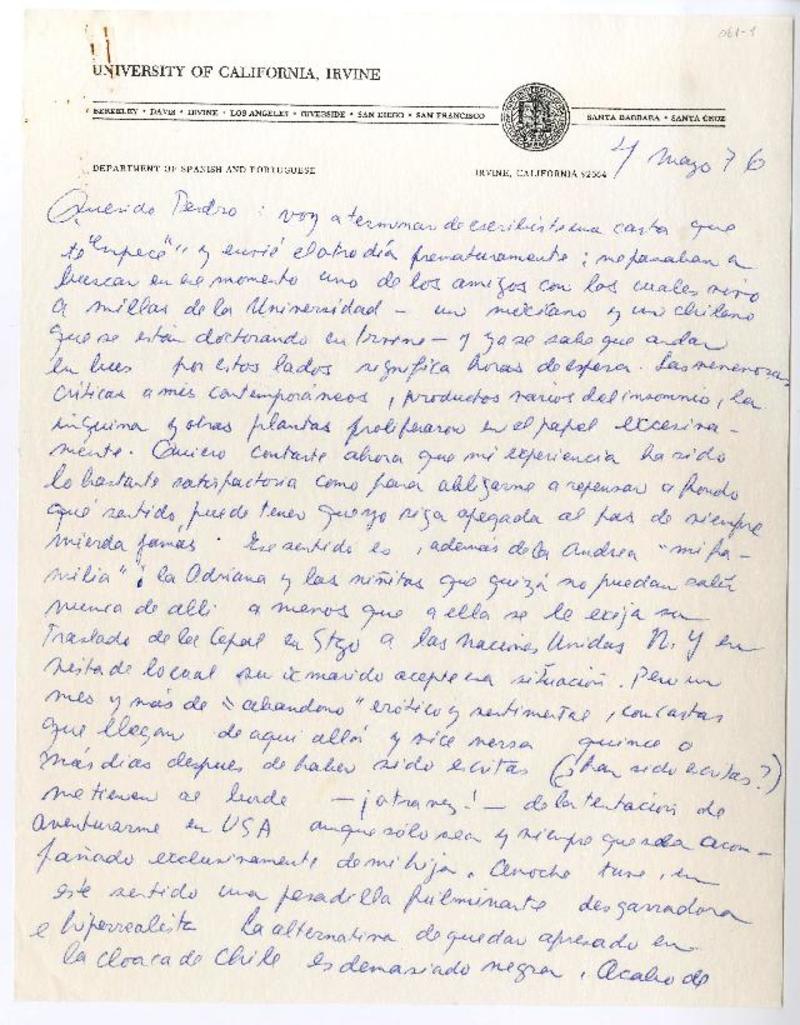 061-1
UNIVERSITY OF CALIFORNIA, IRVINE
BERKELEY • DAVIS • IRVINE • LOS ANGELES • RIVERSIDE • SAN DIEGO • SAN FRANCISCO
SANTA BARBARA • SANTA CRUZ
DEPARTMENT OF SPANISH AND PORTUGUESE
IRVINE, CALIFORNIA 92664
4 Mayo 76
Querido Pedro: voy a terminar de escribirte una carta que
te "empecé" y envié el otro día prematuramente; me pasaban a
buscar en ese momento uno de los amigos con los cuales vivo
a millas de la Universidad — un mexicano y un chileno
que se están doctorando en Irvine — y ya se sabe que andar
en bus por estos lados significa horas de espera. Las venenosas
críticas a mis contemporáneos, productos varios del insomnio, la
inquina y otras plantas proliferaron en el papel excesiva-
mente. Quiero contarte ahora que mi experiencia ha sido
lo bastante satisfactoria como para obligarme a repensar a fondo
qué sentido puede tener que yo siga apegado al país de siempre
mierda jamás. Ese sentido es, además de la Andrea "mi fa-
milia": la Adriana y las niñitas que quizá no puedan salir
nunca de allí a menos que a ella se le exija su
traslado de la Cepal en Stgo a las Naciones Unidas N.Y en
vista de lo cual su marido acepte esa situación. Pero un
mes y más de "abandono" erótico y sentimental, con cartas
que llegan de aquí allá y vice versa quince o
más días después de haber sido escritas (¿han sido escritas?)
me tienen al borde — ¡otra vez! — de la tentación de
aventurarme en USA aunque sólo sea y siempre que sea acom-
pañado exclusivamente de mi hija. Anoche tuve, en
este sentido una pesadilla fulminante desgarradora
e hiperrealista La alternativa de quedar apresado en
la cloaca de Chile es demasiado negra. Acabo de